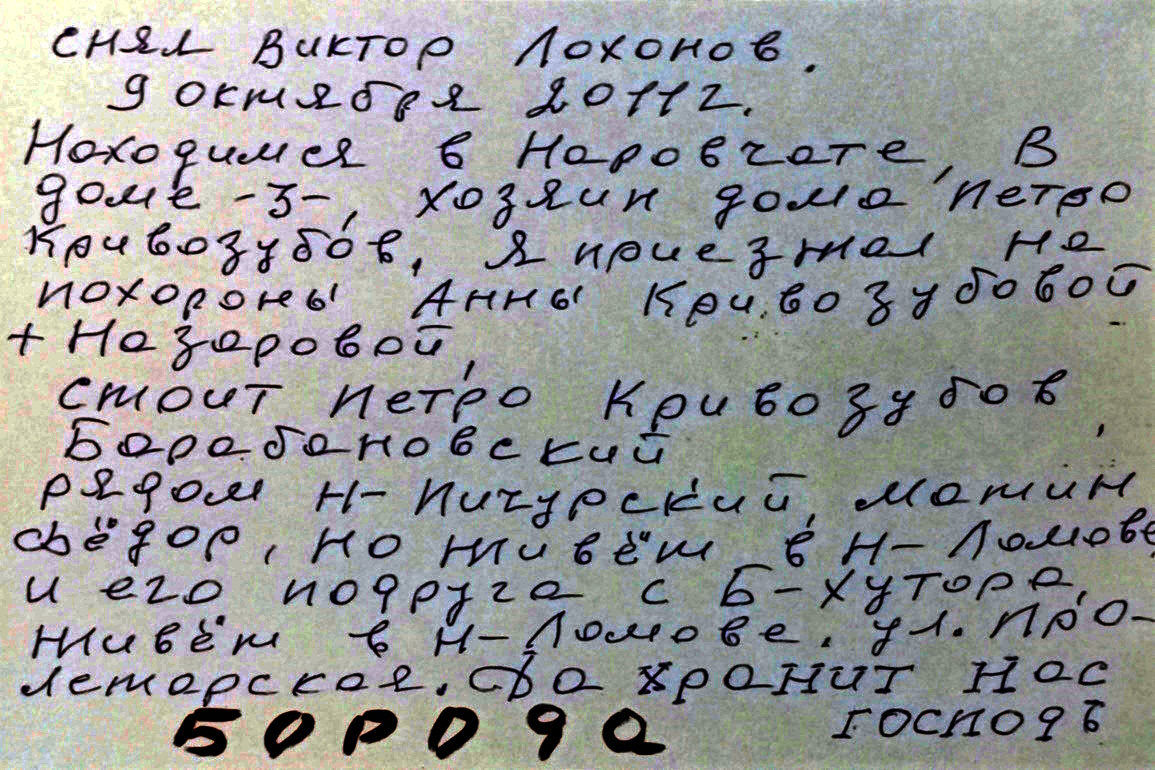 снял Виктор Лохонов.
9 октября 2011г.
Находимся в Наровчате, В
доме -3-, хозяин дома Петро
Кривозубов, я приезжал на
похороны Анны Кривозубовой
+ Назаровой,
стоит Петро Кривозубов,
Барабановский
рядом Н-Пичурский, матин
Фёдор, но живёт в Н-Ломове,
и его подруга с Б-хутора,
живёт в Н-Ломове. ул. Про-
летарская. Да хранит Нас
БОРОДА господь